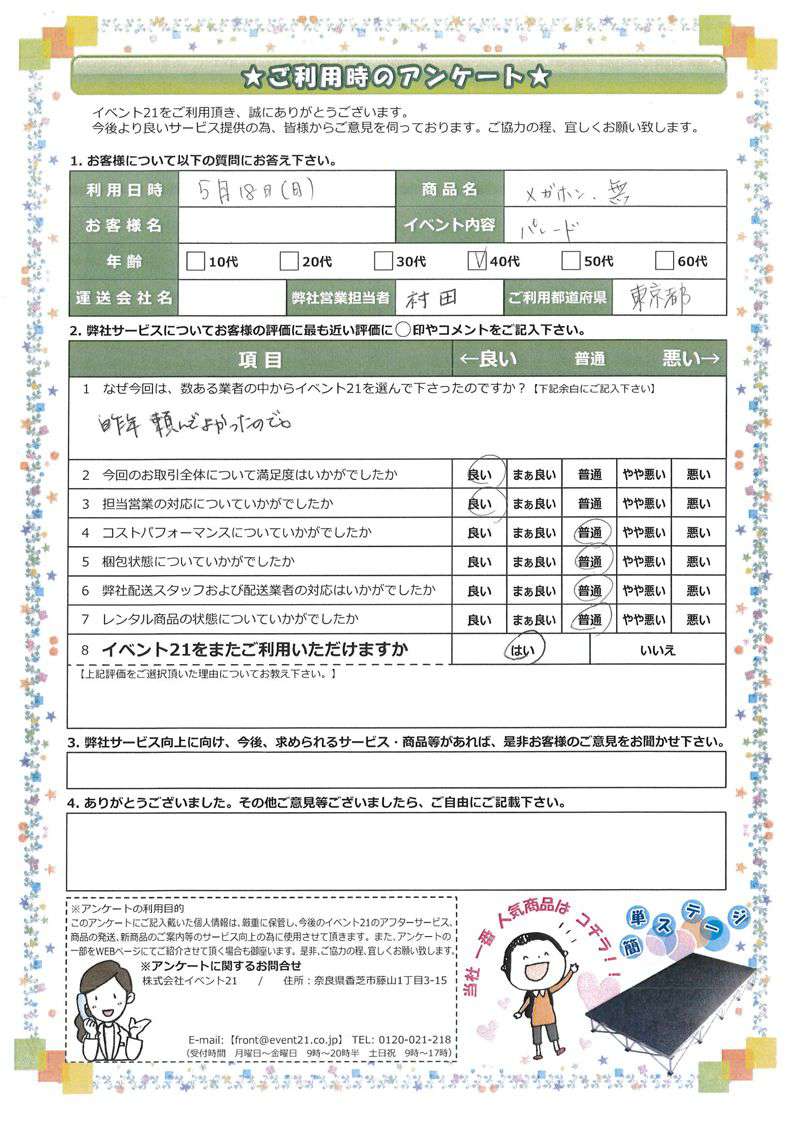 ★ご利用時のアンケート★
イベント21をご利用頂き、誠にありがとうございます。
今後より良いサービス提供の為、皆様からご意見を伺っております。ご協力の程、宜しくお願い致します。
1. お客様について以下の質問にお答え下さい。
利用日時 5月18日(日) 商品名 メガホン、無
お客様名 イベント内容 パレード
年齢 10代 20代 30代 ✓40代 50代 60代
運送会社名 弊社営業担当者 村田 ご利用都道府県 東京都
2. 弊社サービスについてお客様の評価に最も近い評価に○印やコメントをご記入下さい。
項目 ←良い 普通 悪い→
1 なぜ今回は、数ある業者の中からイベント21を選んで下さったのですか？【下記余白にご記入下さい】
昨年頼んでよかったので。
2 今回のお取引全体について満足度はいかがでしたか 良い まぁ良い 普通 やや悪い 悪い
3 担当営業の対応についていかがでしたか 良い まぁ良い 普通 やや悪い 悪い
4 コストパフォーマンスについていかがでしたか 良い まぁ良い 普通 やや悪い 悪い
5 梱包状態についていかがでしたか 良い まぁ良い 普通 やや悪い 悪い
6 弊社配送スタッフおよび配送業者の対応はいかがでしたか 良い まぁ良い 普通 やや悪い 悪い
7 レンタル商品の状態についていかがでしたか 良い まぁ良い 普通 やや悪い 悪い
8 イベント21をまたご利用いただけますか はい いいえ
【上記評価をご選択頂いた理由についてお教え下さい。】
3. 弊社サービス向上に向け、今後、求められるサービス・商品等があれば、是非お客様のご意見をお聞かせ下さい。
4. ありがとうございました。その他ご意見等ございましたら、ご自由にご記載下さい。
※アンケートの利用目的
このアンケートにご記入戴いた個人情報は、厳重に保管し、今後のイベント21のアフターサービス、
商品の発送、新商品のご案内等のサービス向上の為に使用させて頂きます。また、アンケートの
一部をWEBページにてご紹介させて頂く場合も御座います。是非、ご協力の程、宜しくお願い致します。
※アンケートに関するお問合せ
株式会社イベント21 / 住所：奈良県香芝市藤山1丁目3-15
E-mail:【front@event21.co.jp】 TEL: 0120-021-218
(受付時間 月曜日～金曜日 9時～20時半 土日祝 9時～17時)
当社一番人気商品はコチラ！！
簡単ステージ